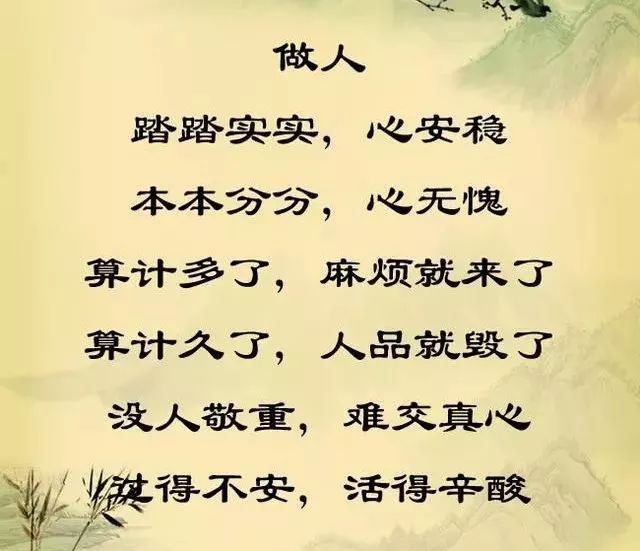 做人
踏踏实实，心安稳
本本分分，心无愧
算计多了，麻烦就来了
算计久了，人品就毁了
没人敬重，难交真心
过得不安，活得辛酸